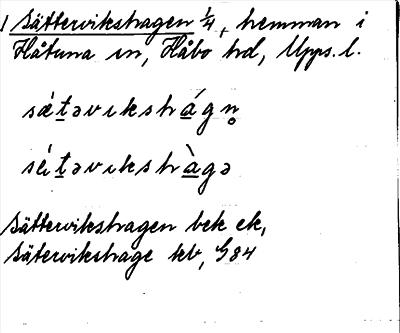 Sättervikshagen 1/4, hemman i
Håtuna sn, Håbo hd, Upps. l.
sǽt̲əvıkshá̲gn̥
sét̲əvıkshà̲gə
Sättervikshagen bek ek,
Sätervikshage kb, G84